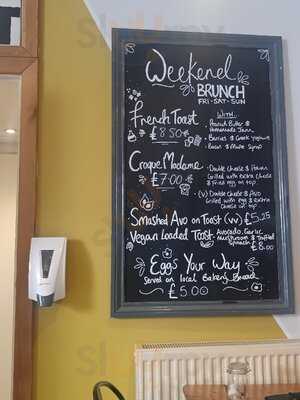 Weekend
BRUNCH
FRI-SAT-SUN
French Toast
£8.50
WITH:
· Peanut Butter &
Homemade Jam
· Berries & Greek yoghurt
· Bacon & Maple Syrup
Croque Madame
£7.00
· Double Cheese & Ham
Grilled with extra cheese
& fried egg on top
· (V) Double Cheese & Avo
Grilled with egg & extra
Cheese on top
Smashed Avo on Toast (VV) £5.25
Vegan Loaded Toast - Avocado, Garlic
Mushroom & Truffled
Spinach £8.00
Eggs Your Way
Served on local Bakery Bread
£5.00